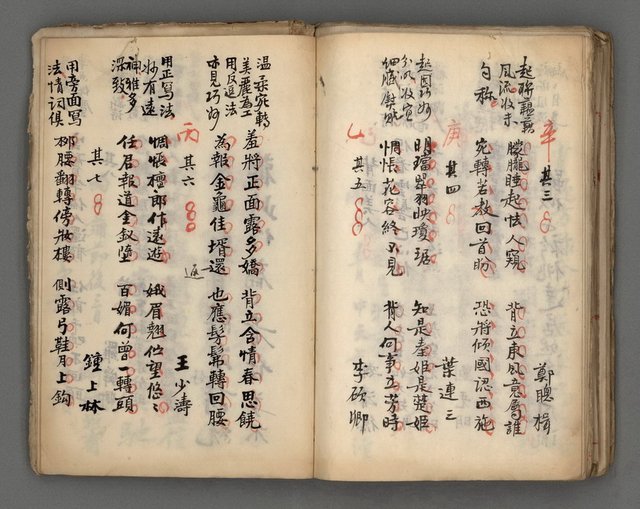 起聯飄飄
風流收末
句稱
辛 其三
鄭聰楫
朦朧睡起怯人窺 背立東風意屬誰
宛轉若教回首盼 恐將傾國認西施
庚 其四
葉連三
起因巧妙
明璫翠羽映瓊琚 知是秦姬是楚姬
惆悵花容終不見 背人何事立芳時
其五
李碩卿
溫柔宛轉
美麗為工
用反逼法
亦見巧妙
羞將正面露多嬌 背立含情春思饒
為報金龜佳壻還 也應髣髴轉回腰
丙 其六
王少濤
用正寫法
妙有遠
神雅多
深致
惆悵檀郎作遠遊 娥眉翹佇望悠〻
任君報道金釵墮 百媚何曾一轉頭
其七
鍾上林
用旁面寫
法情詞俱
柳腰翻轉倚妝樓 側露弓鞋月上鉤